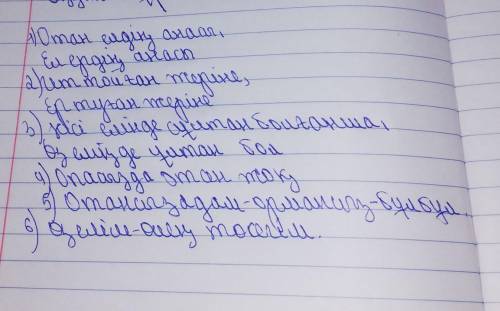 1) Отан елдің анасы,
Ел ердің анасы
2) Ит тойған жеріне,
Ер туған жеріне
3) Кісі елінде сұлтан болғанша,
Өз елізде ұлтан бол
4) Опасызда отан жоқ
5) Отансыз адам-ормансыз-бұлбұл.
6) Өз елім-өлең төсегім.